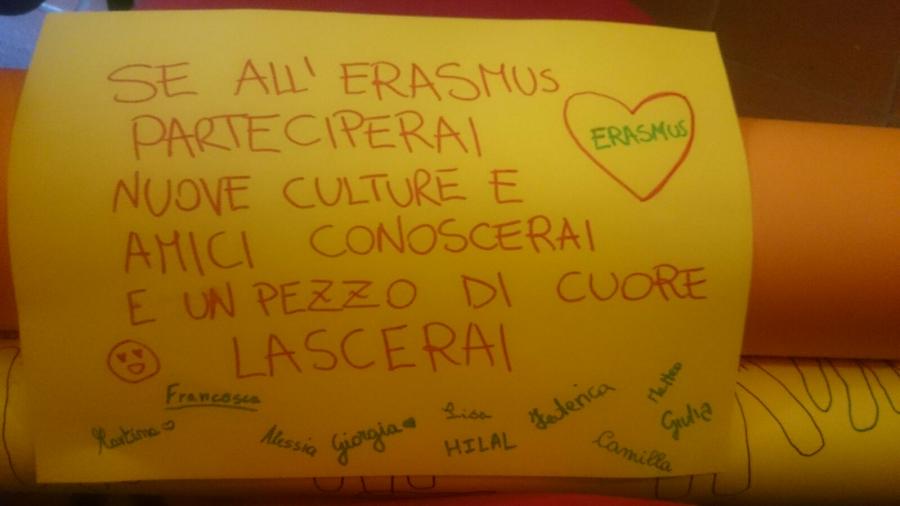 SE ALL' ERASMUS
ERASMUS
PARTECIPERAI
NUOVE CULTURE E
AMICI CONOSCERAI
E UN PEZZO DI CUORE
LASCERAI
Francesca
Martina
Alessia
Giorgia
Lisa
HILAL
Federica
Matteo
Giulia
Camilla